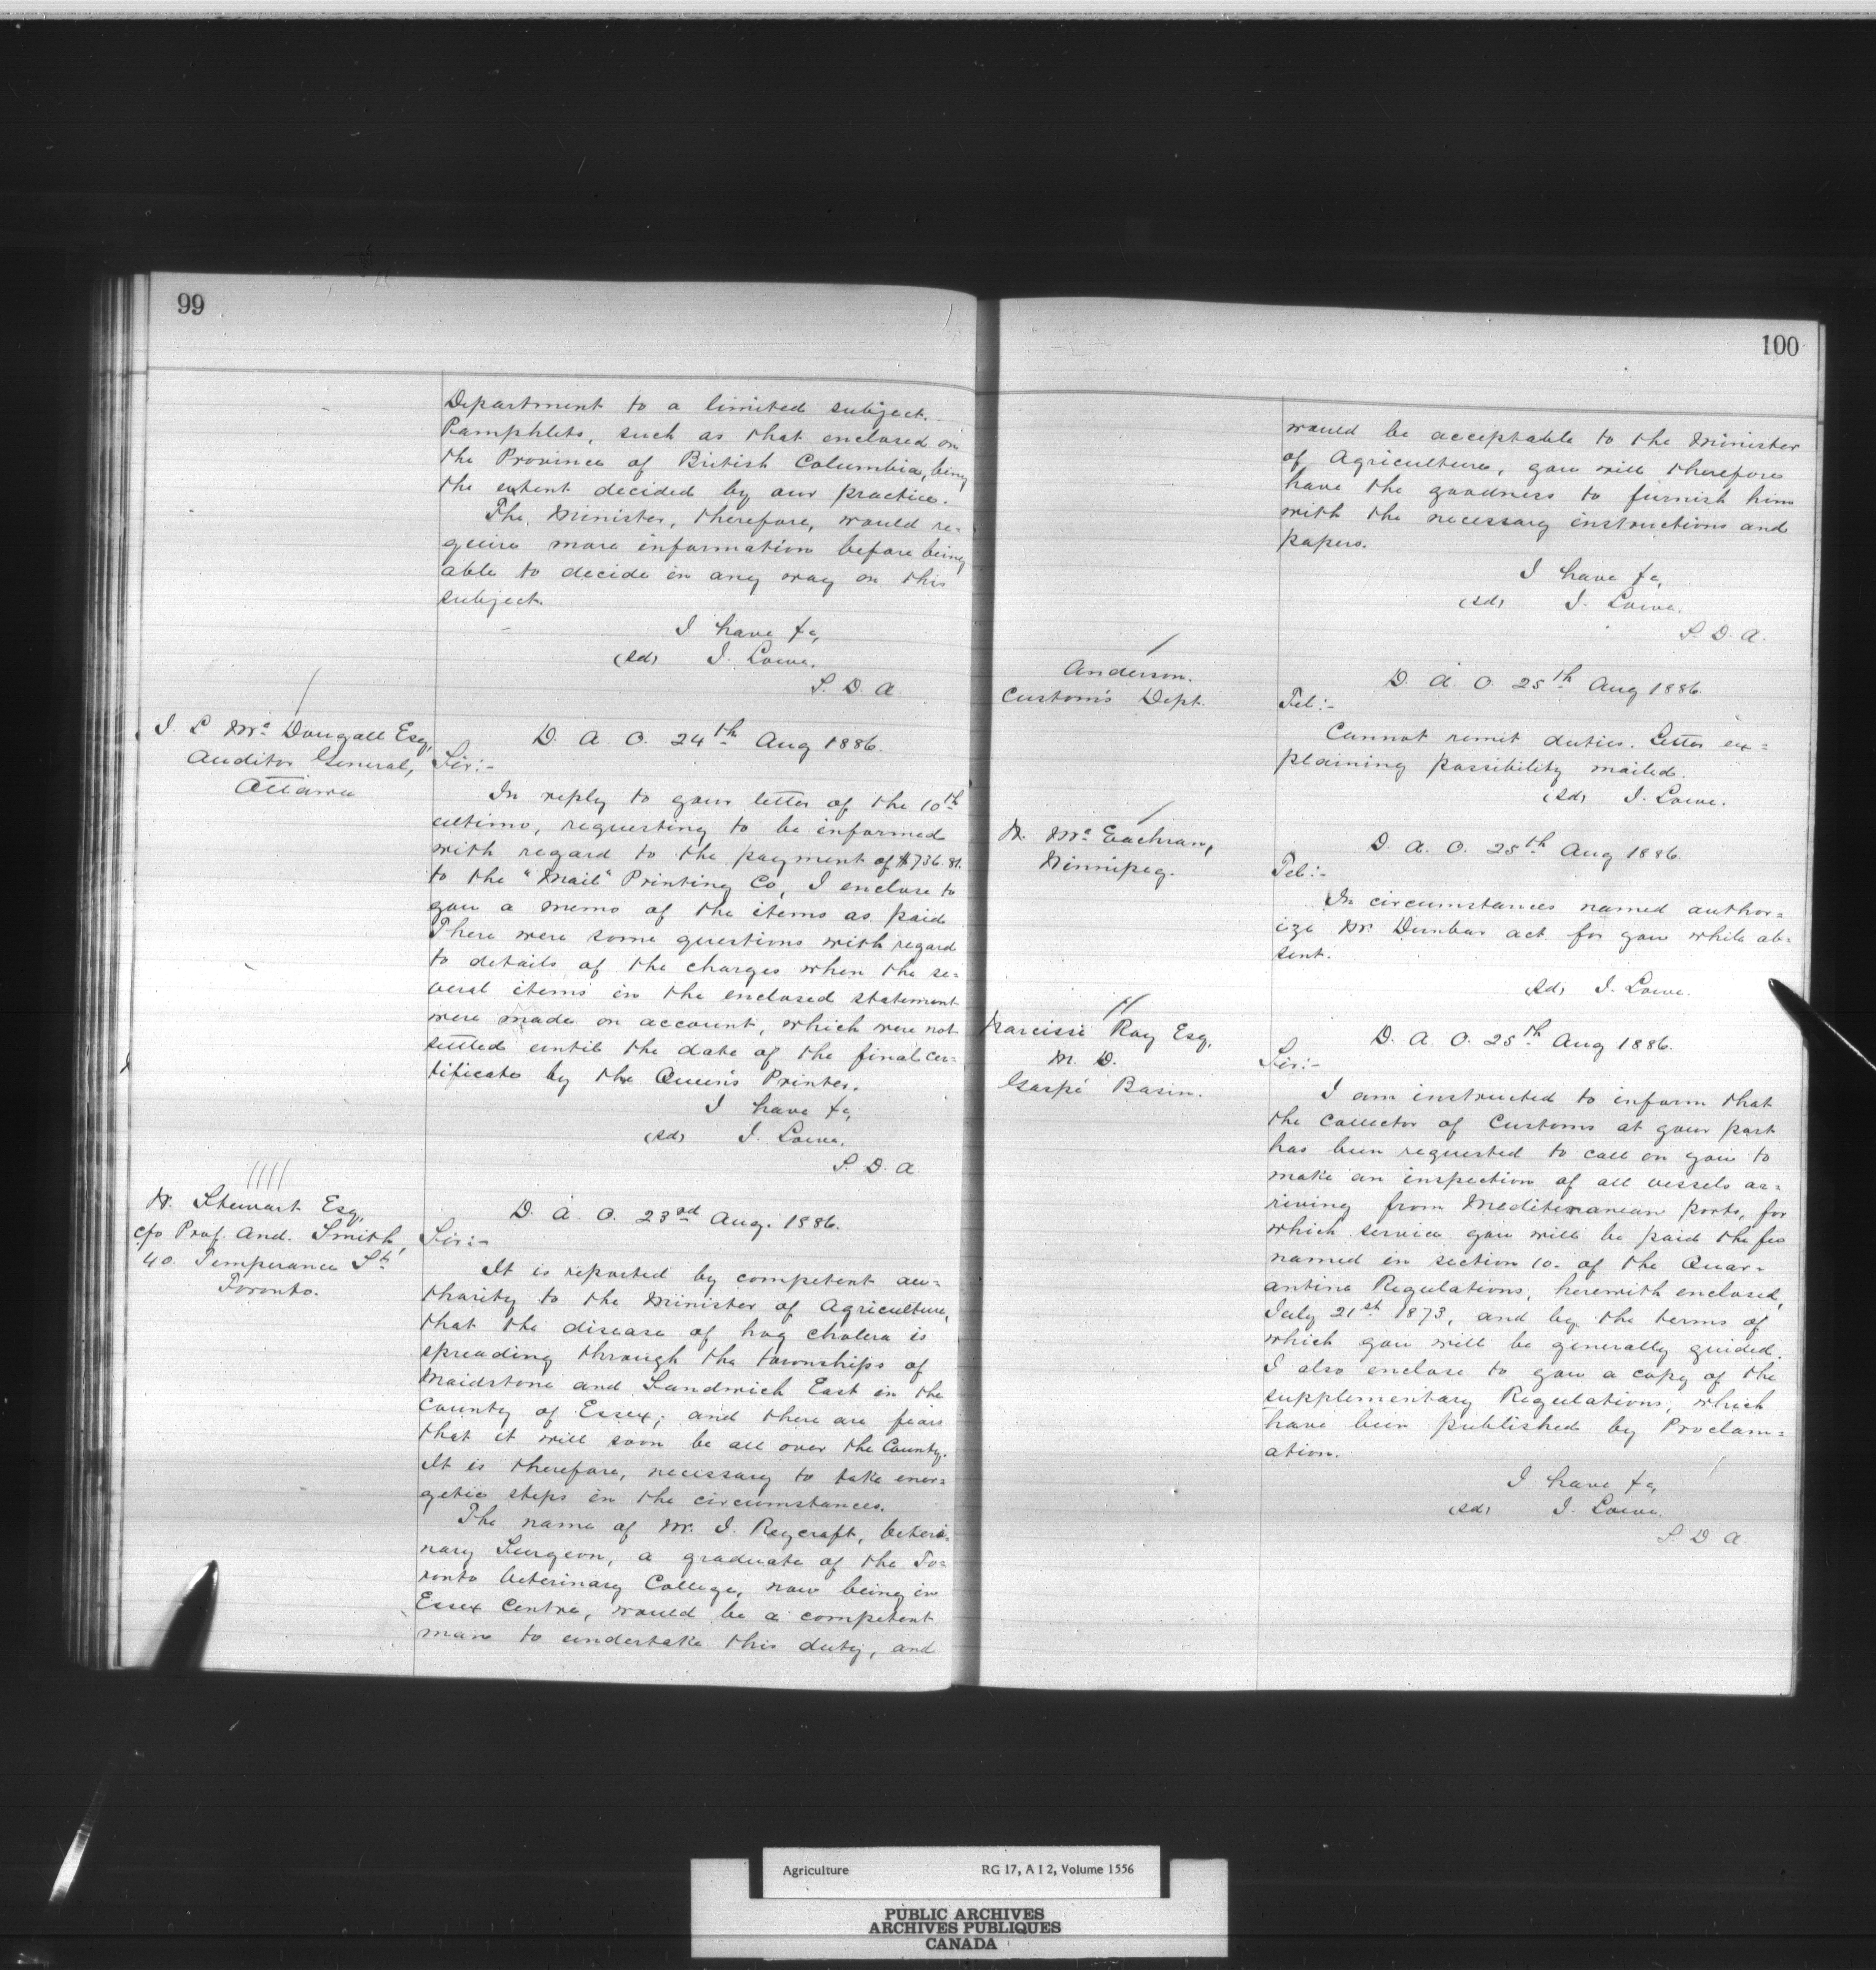 99
Department to a limited subject.
Pamphlets, such as that enclosed on
the Province of British Columbia, being
the extent decided by our practice.
The Minister, therefore, would re=
quire more information before being
able to decide in any way on this
subject.
I have &c,
(sd) J. Lowe.
S. D. A.
J. L. Mc Dougall Esq,
Auditor General,
Ottawa
D. A. O. 24th Aug 1886.
Sir:-
In reply to your letter of the 10th
ultimo, requesting to be informed
with regard to the payment of $736.81.
to the "Mail" Printing Co, I enclose to
you a memo of the items as paid
There were some questions with regard
to details of the charges when the se=
veral items in the enclosed statement
were made on account, which were not
settled until the date of the final cer=
tificate by the Queen's Printer.
I have &c,
(sd) J. Lowe.
S. D. A
W. Stewart Esq,
c/o Prof. And. Smith,
40. Temperance St.
Toronto.
D. A. O. 23rd Aug. 1886.
Sir:-
It is reported by competent au=
thority to the Minister of Agriculture,
that the disease of hog cholera is
spreading through the townships of
Maidstone and Sandwich East in the
County of Essex; and there are fears
that it will soon be all over the County.
It is therefore, necessary to take ener=
getic steps in the circumstances.
The name of Mr. J. Raycraft, Veteri=
nary Surgeon, a graduate of the To=
ronto Veterinary College, now being in
Essex Centre, would be a competent
man to undertake this duty, and
100
would be acceptable to the Minister
of Agriculture, you will therefore
have the goodness to furnish him
with the necessary instructions and
papers.
I have &c,
(sd) J. Lowe.
S. D. A.
Anderson.
Custom's Dept.
D. A. O. 25th Aug 1886.
Tel:-
Cannot remit duties. Letter ex=
plaining possibility mailed.
(sd) J. Lowe.
D. Mc Eachran,
Winnipeg.
D. A. O. 25th Aug 1886.
Tel:-
In circumstances named author=
ize Mr. Dunbar act for you while ab=
sent.
(sd) J. Lowe.
Narcisse Roy Esq.
M. D.
Gaspé Basin.
D. A. O. 25th Aug 1886.
Sir:-
I am instructed to inform that
the Collector of Customs at your port
has been requested to call on you to
make an inspection of all vessels ar=
riving from Mediterranean ports, for
which service you will be paid the fee
named in section 10. of the Quar=
antine Regulations, herewith enclosed,
July 21st 1873, and by the terms of
which you will be generally guided.
I also enclose to you a copy of the
supplementary Regulations, which
have been published by Proclam=
ation.
I have &c,
(sd) J. Lowe.
S D A.
Agriculture RG 17, A I 2, Volume 1556
PUBLIC ARCHIVES
ARCHIVES PUBLIQUES
CANADA